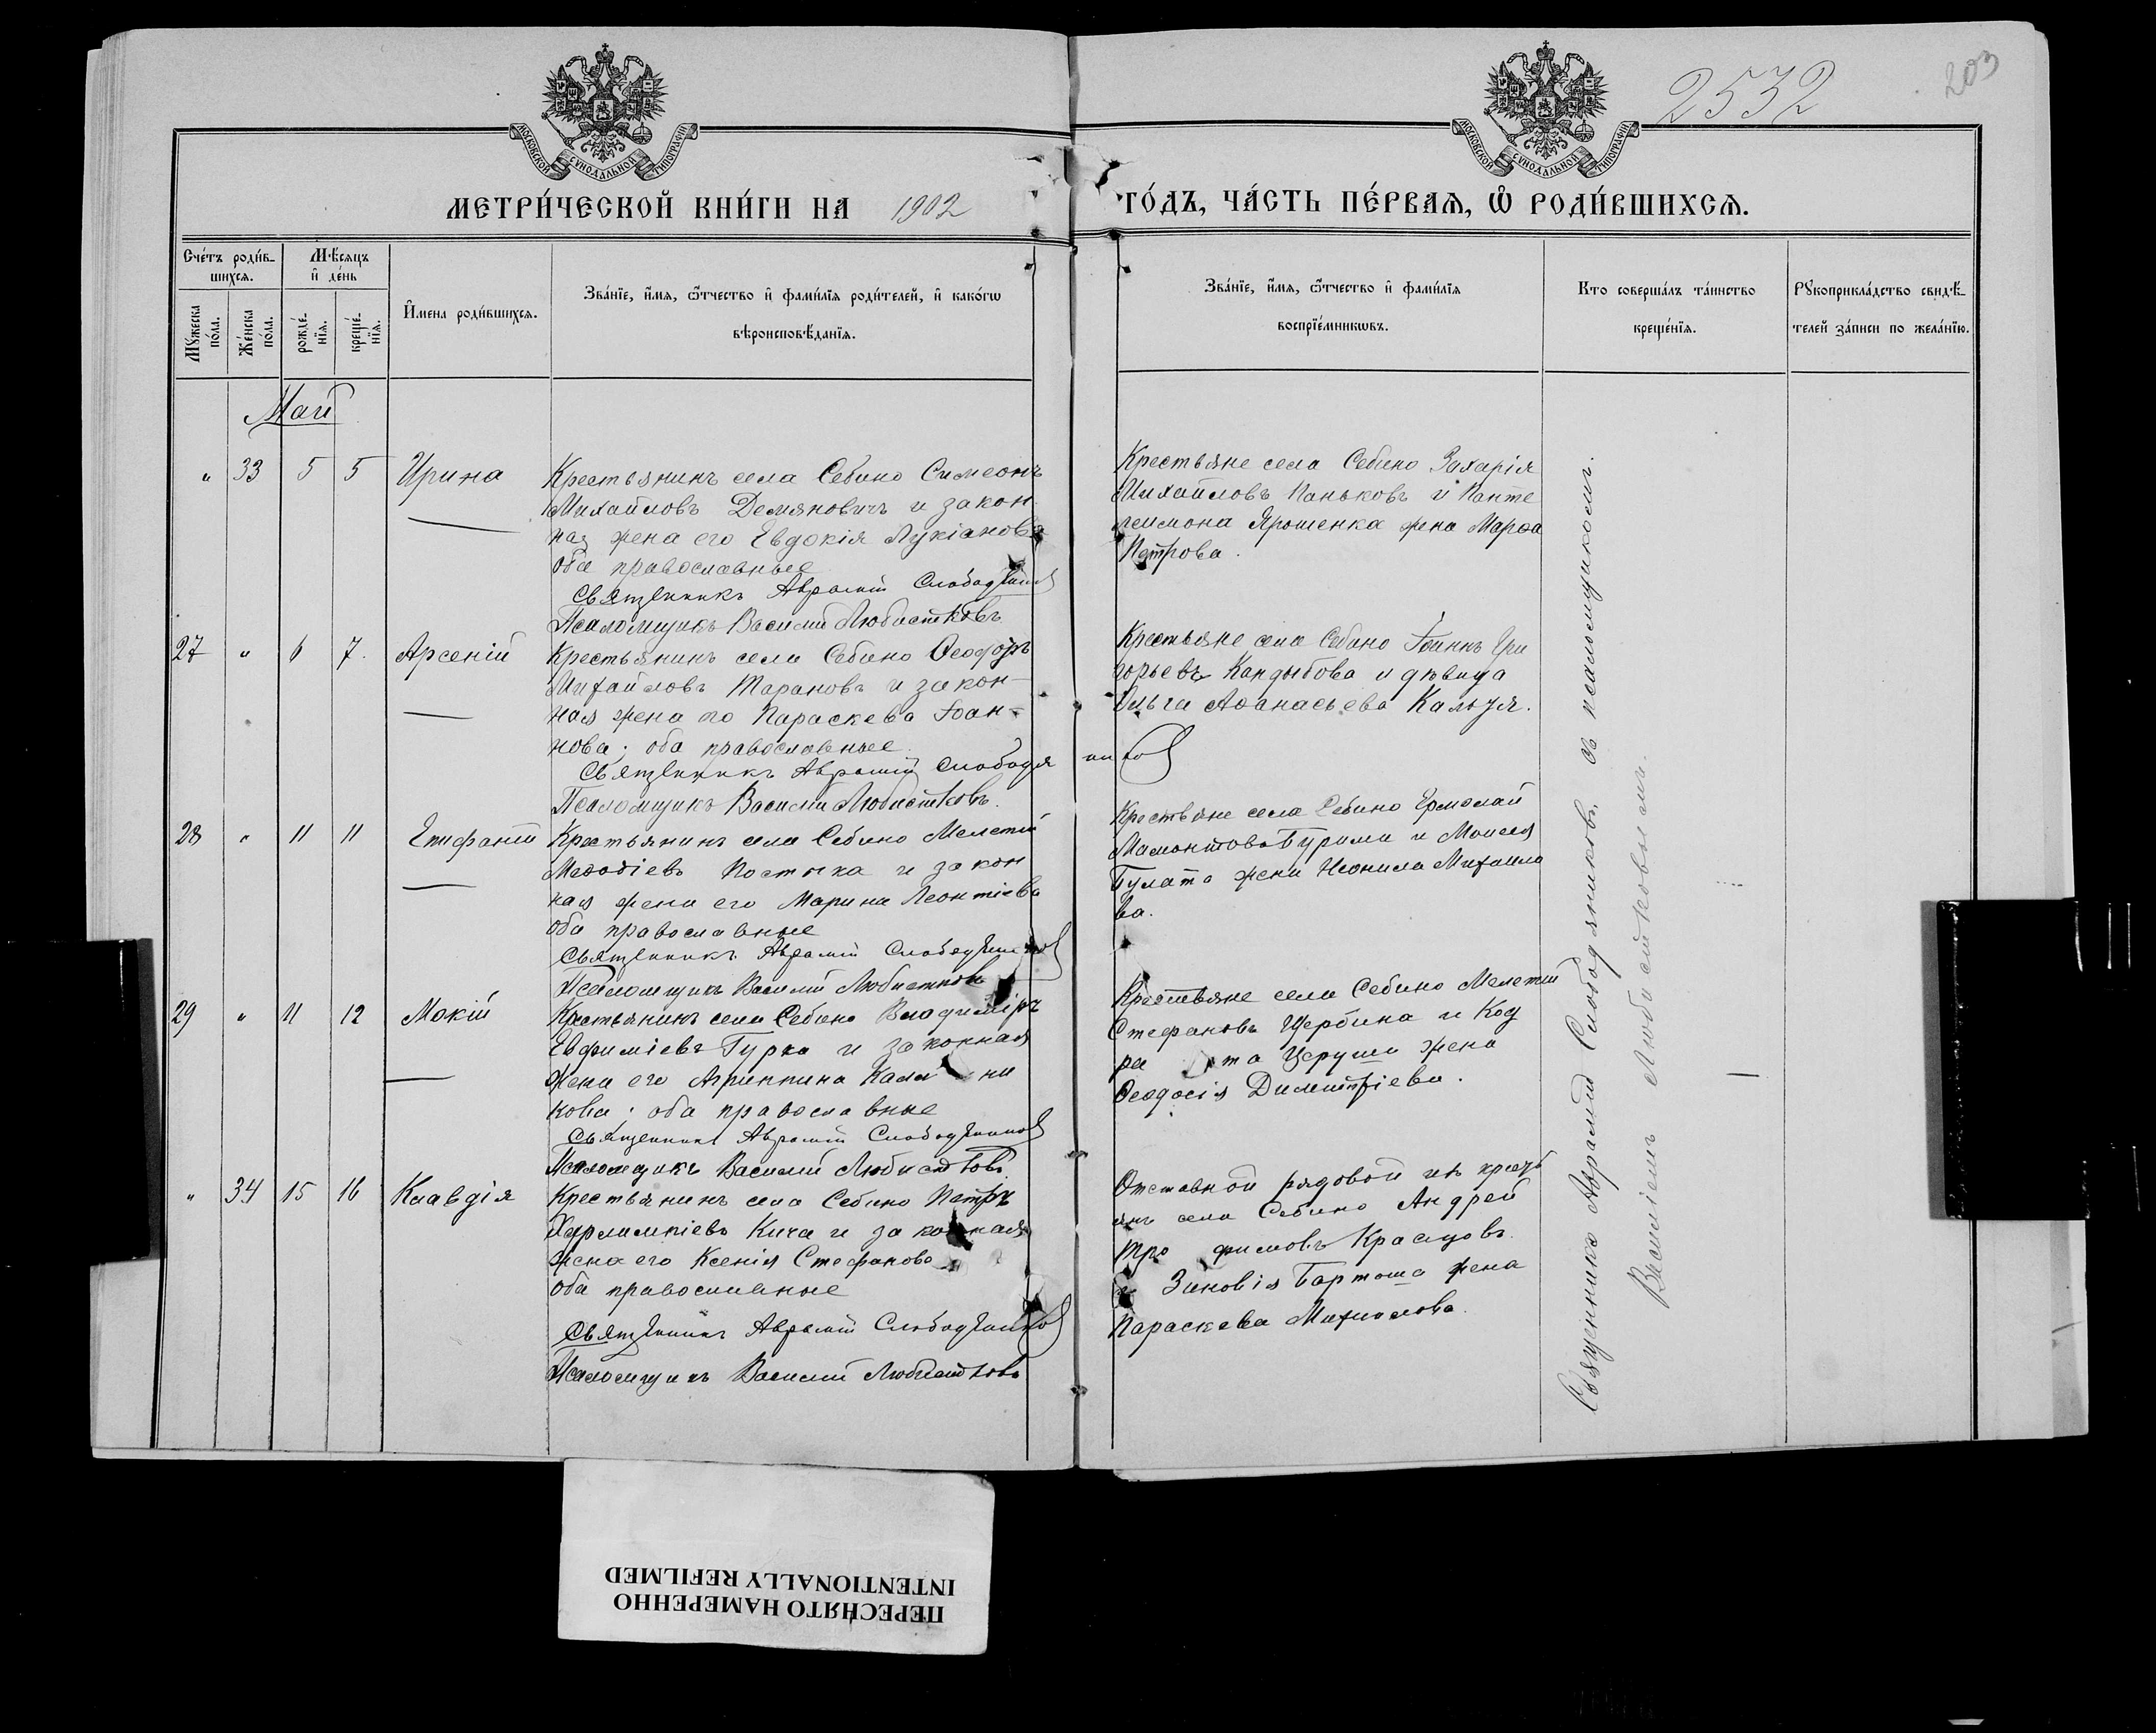 2532
203
МОСКОВСКОЙ СУНОДАЛЬНОЙ ТИПОГРАФІИ
МОСКОВСКОЙ СУНОДАЛЬНОЙ ТИПОГРАФІИ
МЕТРИ́ЧЕСКОЙ КНИ́ГИ НА 1902 ГО́ДЪ, ЧА́СТЬ ПЕ́РВАѦ, Ѡ҆ РОДИ́ВШИХСѦ.
Сче́тъ роди́в-
шихсѧ.
Мꙋ́жеска по́ла.
Же́нска по́ла.
Мѣ́сяцъ
и҆ де́нь
рожде́-
нїѧ.
креще́-
нїѧ.
И҆́мена роди́вшихсѧ.
Зва́нїе, и҆́мѧ, ѻ҆́тчество и҆ фами́лїѧ роди́телей, и҆ како́гѡ
вѣроисповѣ́данїѧ.
Зва́нїе, и҆́мѧ, ѻ҆́тчество и҆ фами́лїѧ
воспрїе́мникѡвъ.
Кто соверша́лъ та́инство
креще́нїѧ.
Рꙋкоприкла́дство свидѣ́-
телей за́писи по жела́нїю.
Май
" 33 5 5 Ирина
Крестьянинъ села Себино Симеонъ
Михайловъ Демяновичъ и закон
ная жена его Евдокія Лукіанова
оба православные
Священникъ Аврамій Слободяников
Псаломщикъ Василій Любистковъ
Крестьяне села Себино Захарія
Михайловъ Паньковъ и Панте
леимона Ярошенка жена Марѳа
Петрова.
27 " 6 7. Арсеній
Крестьянинъ села Себино Ѳеодоръ
Михайловъ Тарановъ и закон-
ная жена его Параскева Іоан-
нова; оба православные.
Священникъ Аврамій Слободяников
Псаломщикъ Василій Любистковъ.
Крестьяне села Себино Іоаннъ Гри
горьевъ Кандыбова и дѣвица
Ольга Аѳанасьева
28 " 11 11 Епифаній
Крестьянинъ села Себино Мелетій
Меѳодіевъ Костыка и закон
ная жена его Марина Леонтіева
оба православные
Священникъ Аврамій Слободяников
Псаломщикъ Василій Любистковъ
Крестьяне села Себино Ермолай
Мамонтовъ Бурима и Моисея
Булата жена Неонила Михаило
ва.
29 " 11 12 Мокій
Крестьянинъ села Себино Владиміръ
Евфиміевъ Гурка и законная
жена его Агриппина Калли ни
кова; оба православные
Священникъ Аврамій Слободяников
Псаломщикъ Василій Любистковъ
Крестьяне села Себино Мелетій
Стефановъ Щербина и Код
ра та жена
Ѳеодосія Димитріева.
" 34 15 16 Клавдія
Крестьянинъ села Себино Петръ
Харлампіевъ Кича и законная
жена его Ксенія Стефанова
оба православные
Священникъ Аврамій Слободяников
Псаломщикъ Василій Любистковъ
Отставной рядовой изъ кресть
янъ села Себино Андрей
Тро фимовъ
и Зиновія Бартоша жена
Параскева Михайлова.
Священникъ Аврамій Слободяниковъ, съ псаломщикомъ.
Василіемъ Любистковымъ.
ПЕРЕСНЯТО НАМЕРЕННО
INTENTIONALLY REFILMED